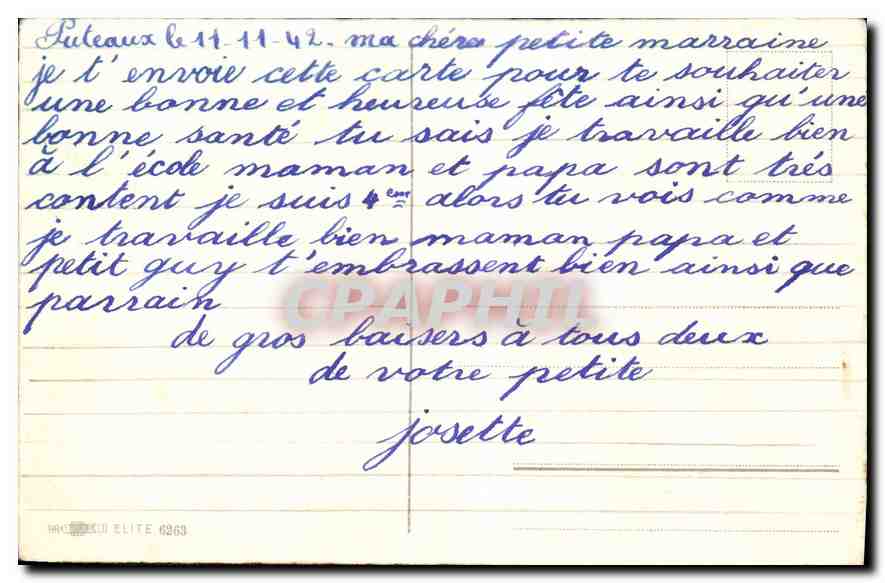 Puteaux le 11-11-42. ma chére petite marraine
je t'envoie cette carte pour te souhaiter
une bonne et heureuse fête ainsi qu'une
bonne santé tu sais je travaille bien
à l'école maman et papa sont trés
content je suis 4em alors tu vois comme
je travaille bien maman papa et
petit guy t'embrassent bien ainsi que
parrain
CPAPHIL
de gros baisers à tous deux
de votre petite
josette
ELITE 6263